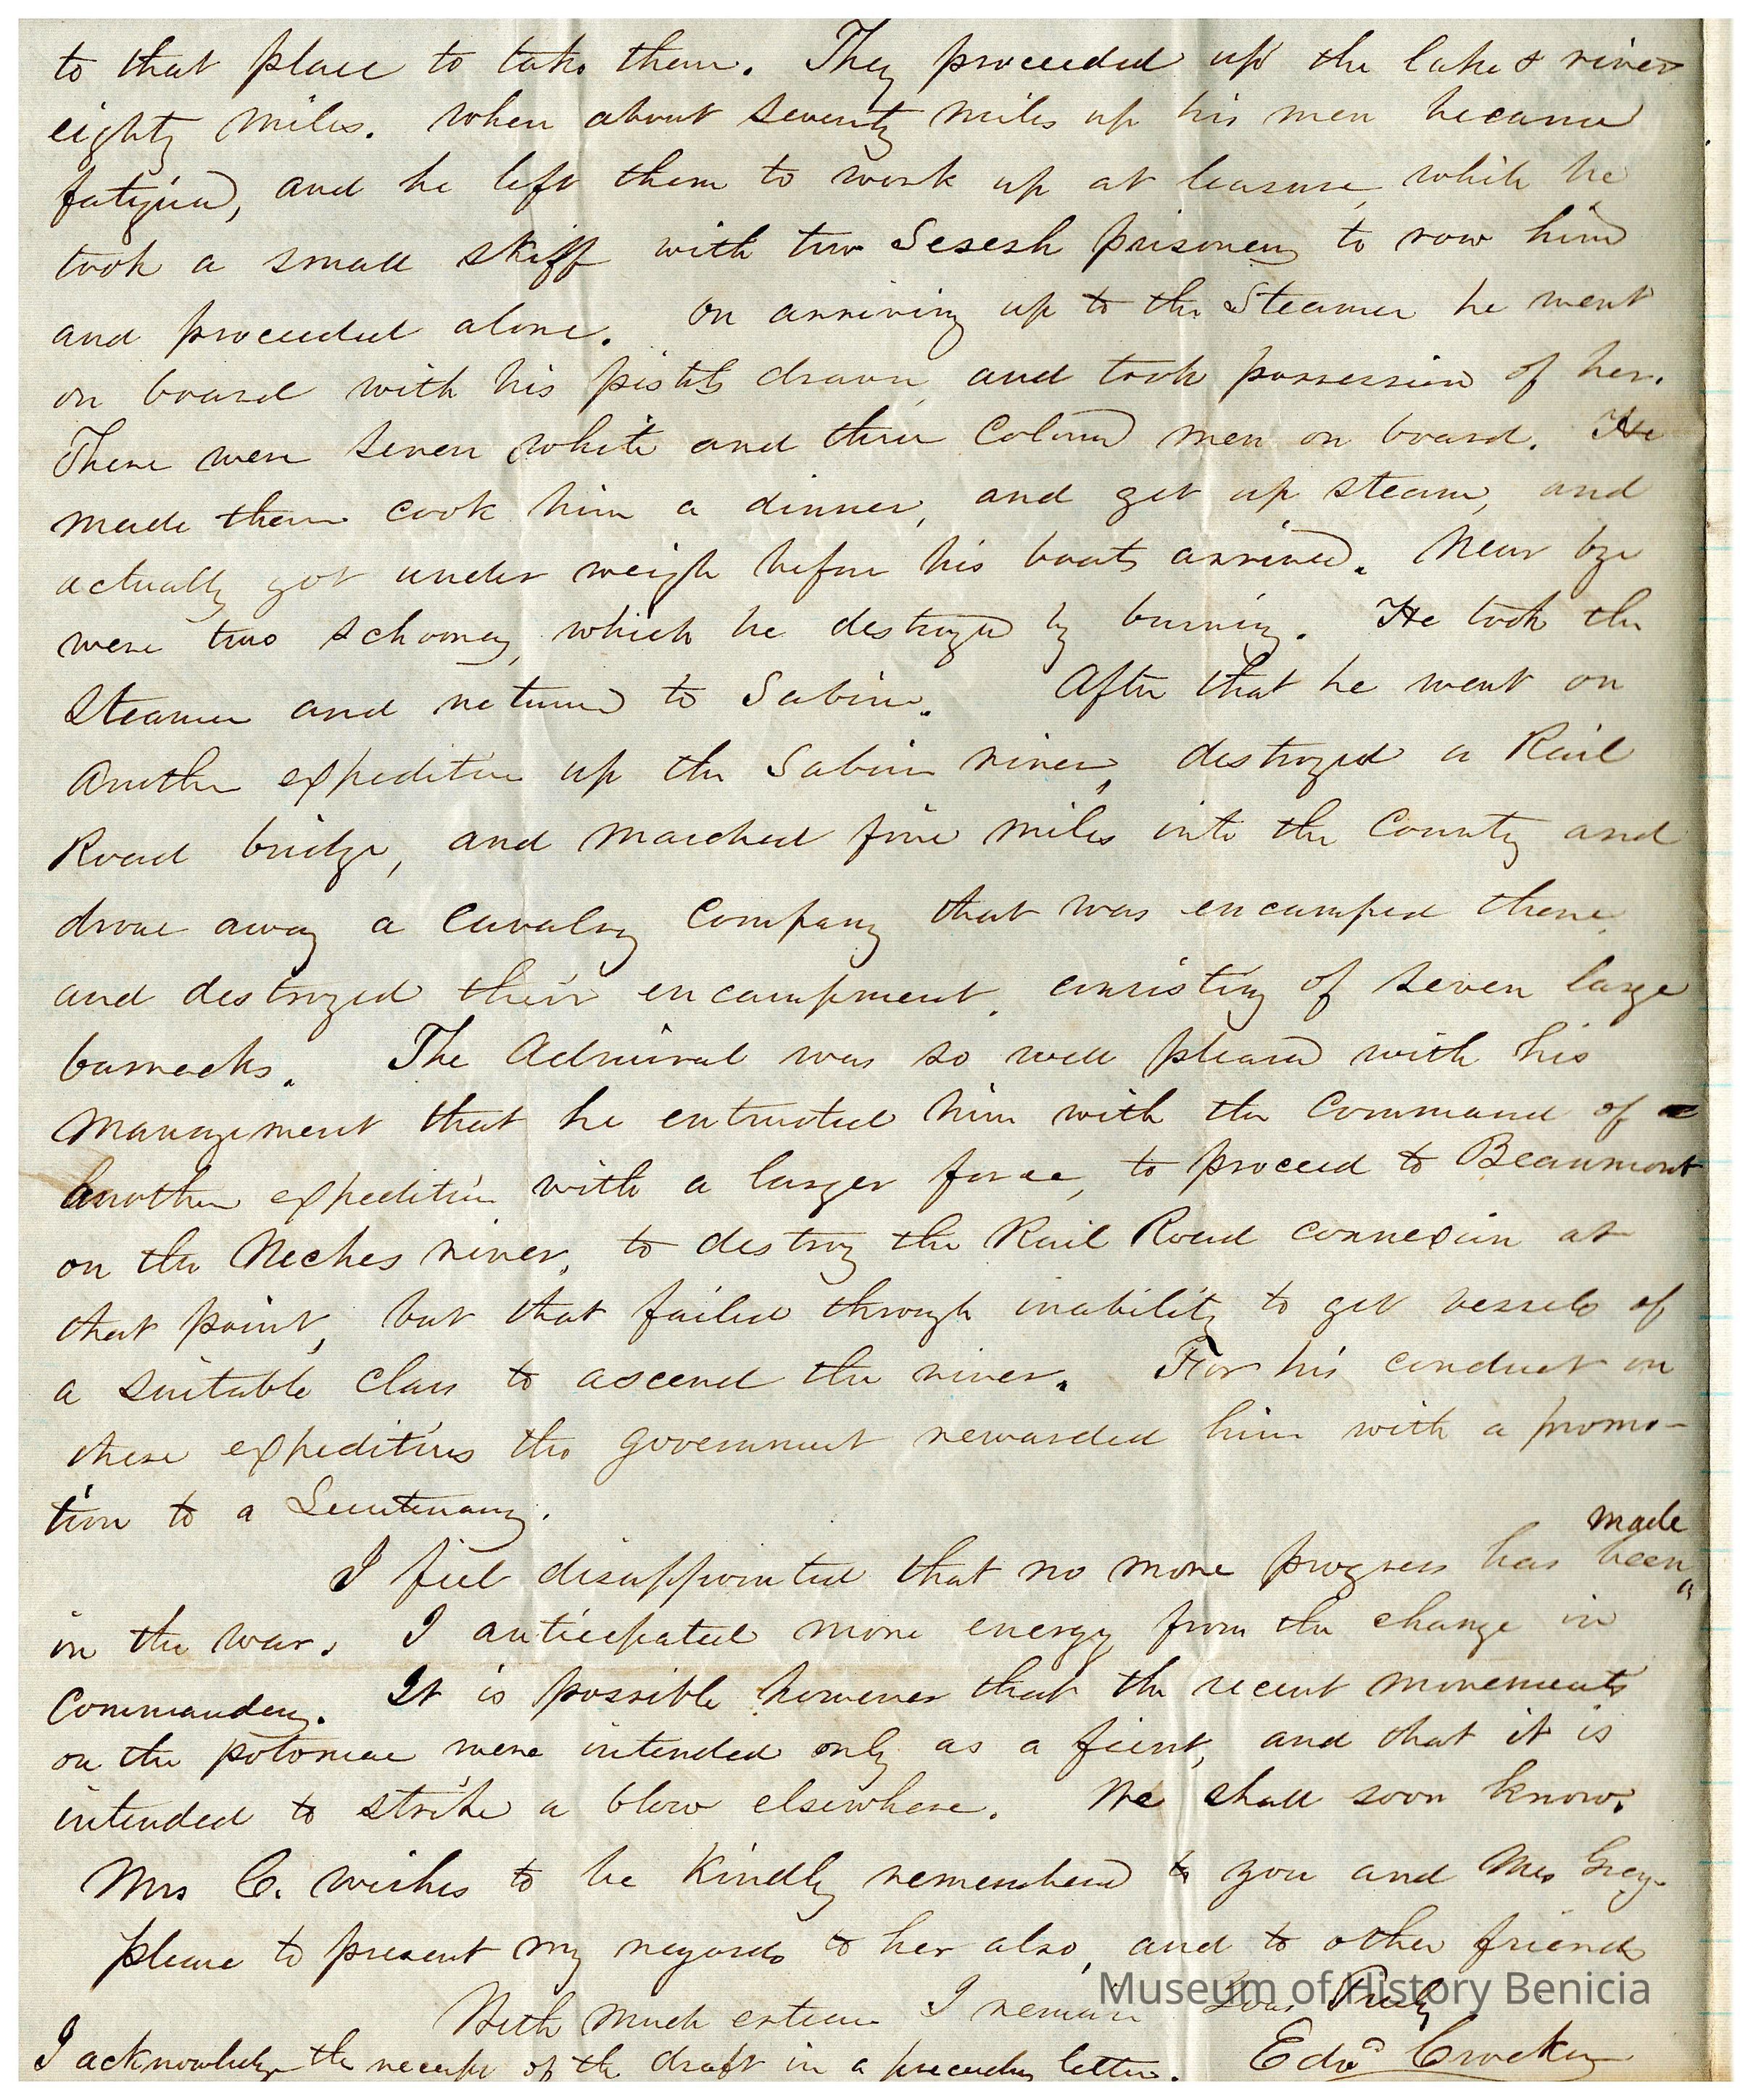 to that place to take them. They proceeded up the lake & river
eighty miles. When about seventy miles up his men became
fatigued, and he left them to work up at leasure, while he
took a small skiff with two Sesesh prisoners to row him
and proceeded alone. On arriving up to the Steamer he went
on board with his pistols drawn and took possession of her.
There were seven white and three Colored men on board. He
made them cook him a dinner, and get up steam, and
actually got under weigh before his boats arrived. Near bye
were two schooners, which he destroyed by burning. He took the
Steamer and returned to Sabine. After that he went on
another expedition up the Sabine river, destroyed a Rail
Road bridge, and marched five miles into the County and
drove away a Cavalry Company that was encamped there,
and destroyed their encampment, consisting of seven large
barracks. The Admiral was so well pleased with his
management that he entrusted him with the Command of
another expedition with a larger force, to proceed to Beaumont
on the Neches river, to destroy the Rail Road connexion at
that point, but that failed through inability to get vessels of
a suitable class to ascend the river. For his conduct on
these expeditions the government rewarded him with a promo-
tion to a Lieutenancy.
I feel disappointed that no more progress has been made
in the war. I anticipated more energy from the change in
Commanders. It is possible however that the recent movements
on the potomac were intended only as a feint, and that it is
intended to strike a blow elsewhere. We shall soon know.
Mrs C. wishes to be kindly remembered to you and Mrs Grey.
please to present my regards to her also, and to other friends
With much esteem I remain Your Truly
Edwd Crocker
I acknowledge the receipt of the draft in a preceding letter.
Museum of History Benicia